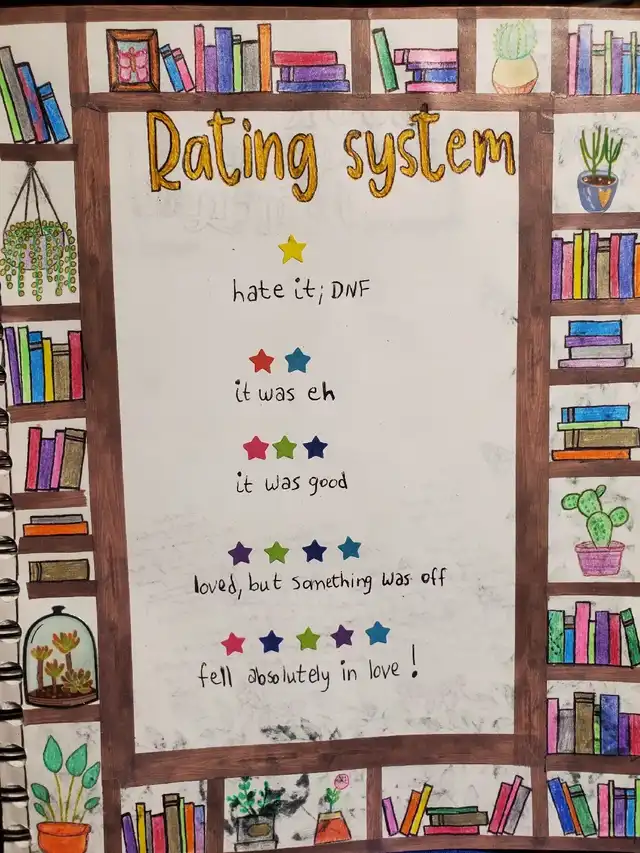 Rating system
hate it; DNF
it was eh
it was good
loved, but something was off
fell absolutely in love!